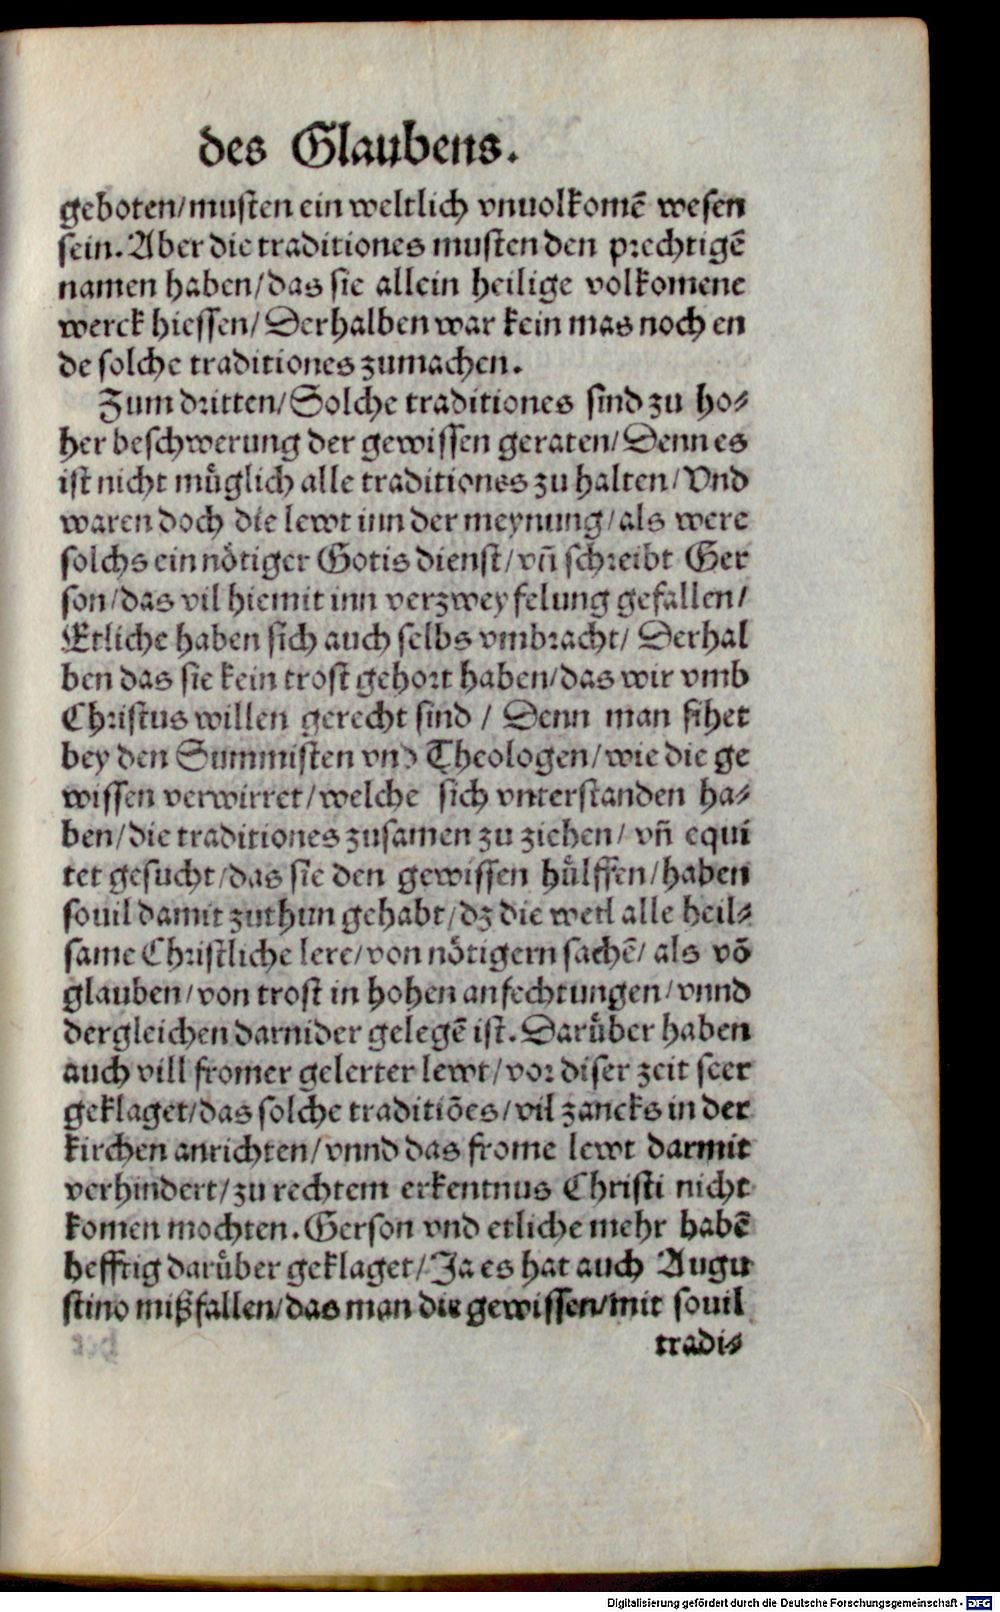 des Glaubens.
geboten/musten ein weltlich vnuolkomē wesen
sein. Aber die traditiones musten den prechtigē
namen haben/das sie allein heilige volkomene
werck hiessen/Derhalben war kein mas noch en
de solche traditiones zumachen.
Zum dritten/Solche traditiones sind zu ho⸗
her beschwerung der gewissen geraten/Denn es
ist nicht muͤglich alle traditiones zu halten/Vnd
waren doch die lewt inn der meynung/als were
solchs ein noͤtiger Gotis dienst/vn̄ schreibt Ger
son/das vil hiemit inn verzweyfelung gefallen/
Etliche haben sich auch selbs vmbracht/Derhal
ben das sie kein trost gehort haben/das wir vmb
Christus willen gerecht sind/Denn man sihet
bey den Summisten vnd Theologen/wie die ge
wissen verwirret/welche sich vnterstanden ha⸗
ben/die traditiones zusamen zu ziehen/vn̄ equi
tet gesucht/das sie den gewissen huͤlffen/haben
souil damit zuthun gehabt/dz die weil alle heil⸗
same Christliche lere/von noͤtigern sachē/als võ
glauben/von trost in hohen anfechtungen/vnnd
dergleichen darnider gelegē ist. Daruͤber haben
auch vill fromer gelerter lewt/vor diser zeit seer
geklaget/das solche traditiões/vil zancks in der
kirchen anrichten/vnnd das frome lewt darmit
verhindert/zu rechtem erkentnus Christi nicht
komen mochten. Gerson vnd etliche mehr habē
hefftig daruͤber geklaget/Ja es hat auch Augu
stino mißfallen/das man die gewissen/mit souil
tradi⸗
Digitalisierung gefördert durch die Deutsche Forschungsgemeinschaft - DFG